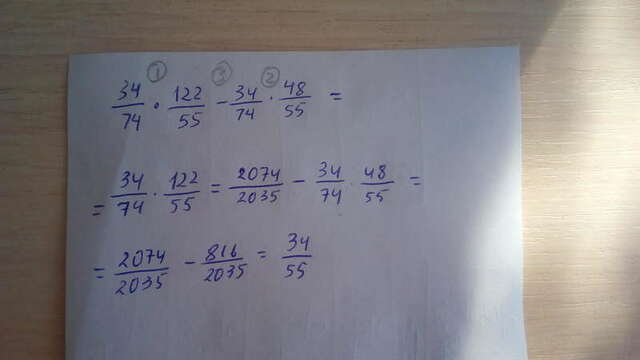 ① ③ ②
34/74 · 122/55 - 34/74 · 48/55 =
= 34/74 · 122/55 = 2074/2035 - 34/74 · 48/55 =
= 2074/2035 - 816/2035 = 34/55